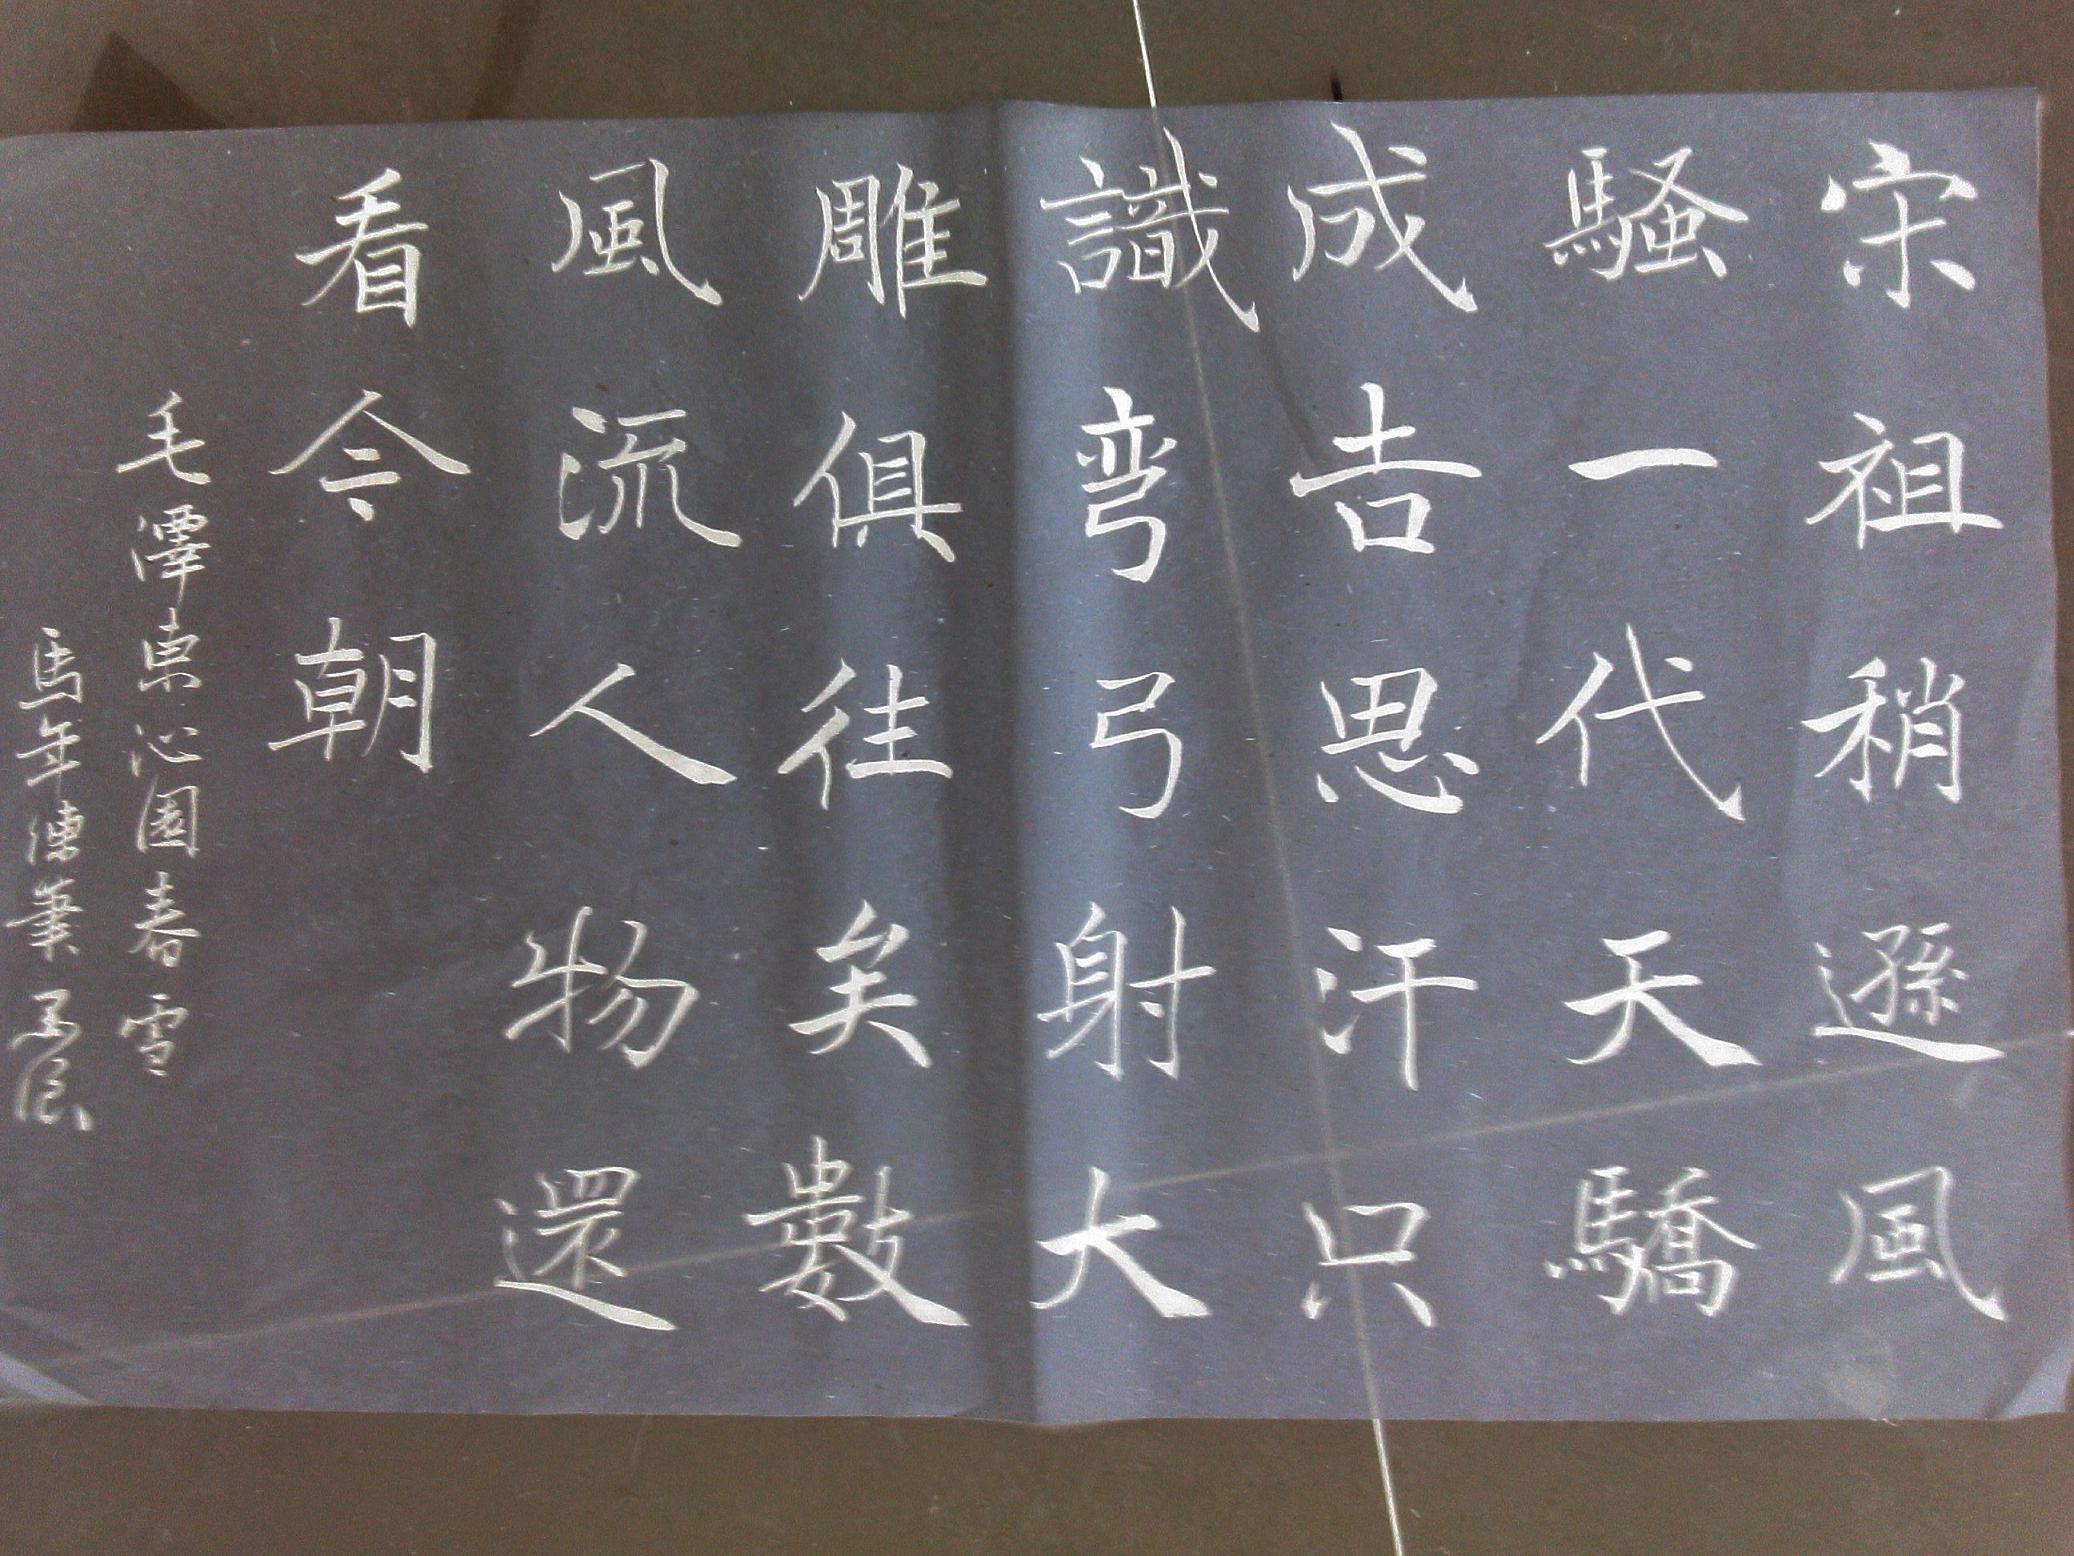 宋祖稍遜風
騷一代天驕
成吉思汗只
識彎弓射大
雕俱往矣數
風流人物還
看今朝
毛澤東沁園春雪
馬年陳葉